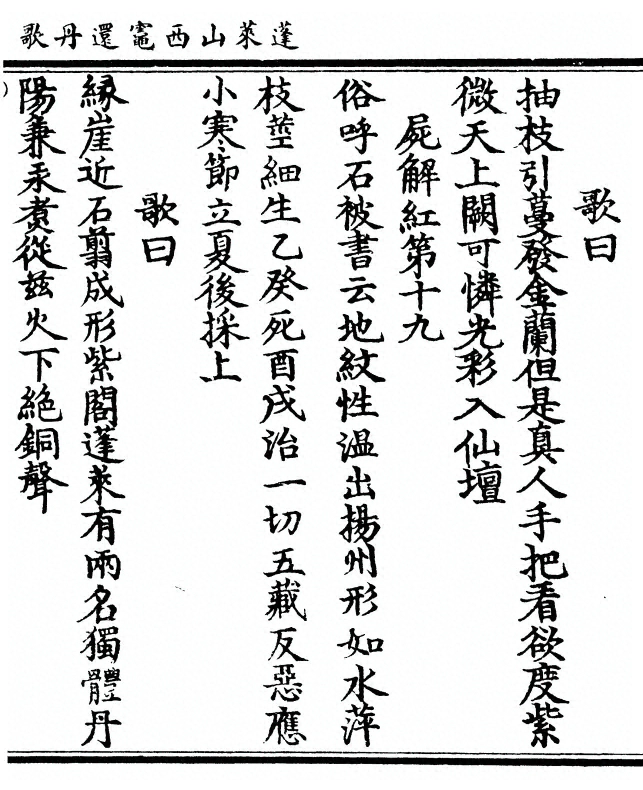 蓬萊山西竈還丹歌
歌曰
抽枝引蔓發金蘭但是真人手把看欲度紫
微天上闕可憐光彩入仙壇
屍解紅第十九
俗呼石被書云地紋性溫出揚州形如水萍
枝莖細生乙癸死酉戌治一切五藏反惡應
小寒節立夏後採上
歌曰
緣崖近石翦成形紫閣蓬萊有兩名獨體丹
陽兼汞煑從茲火下絕銅聲